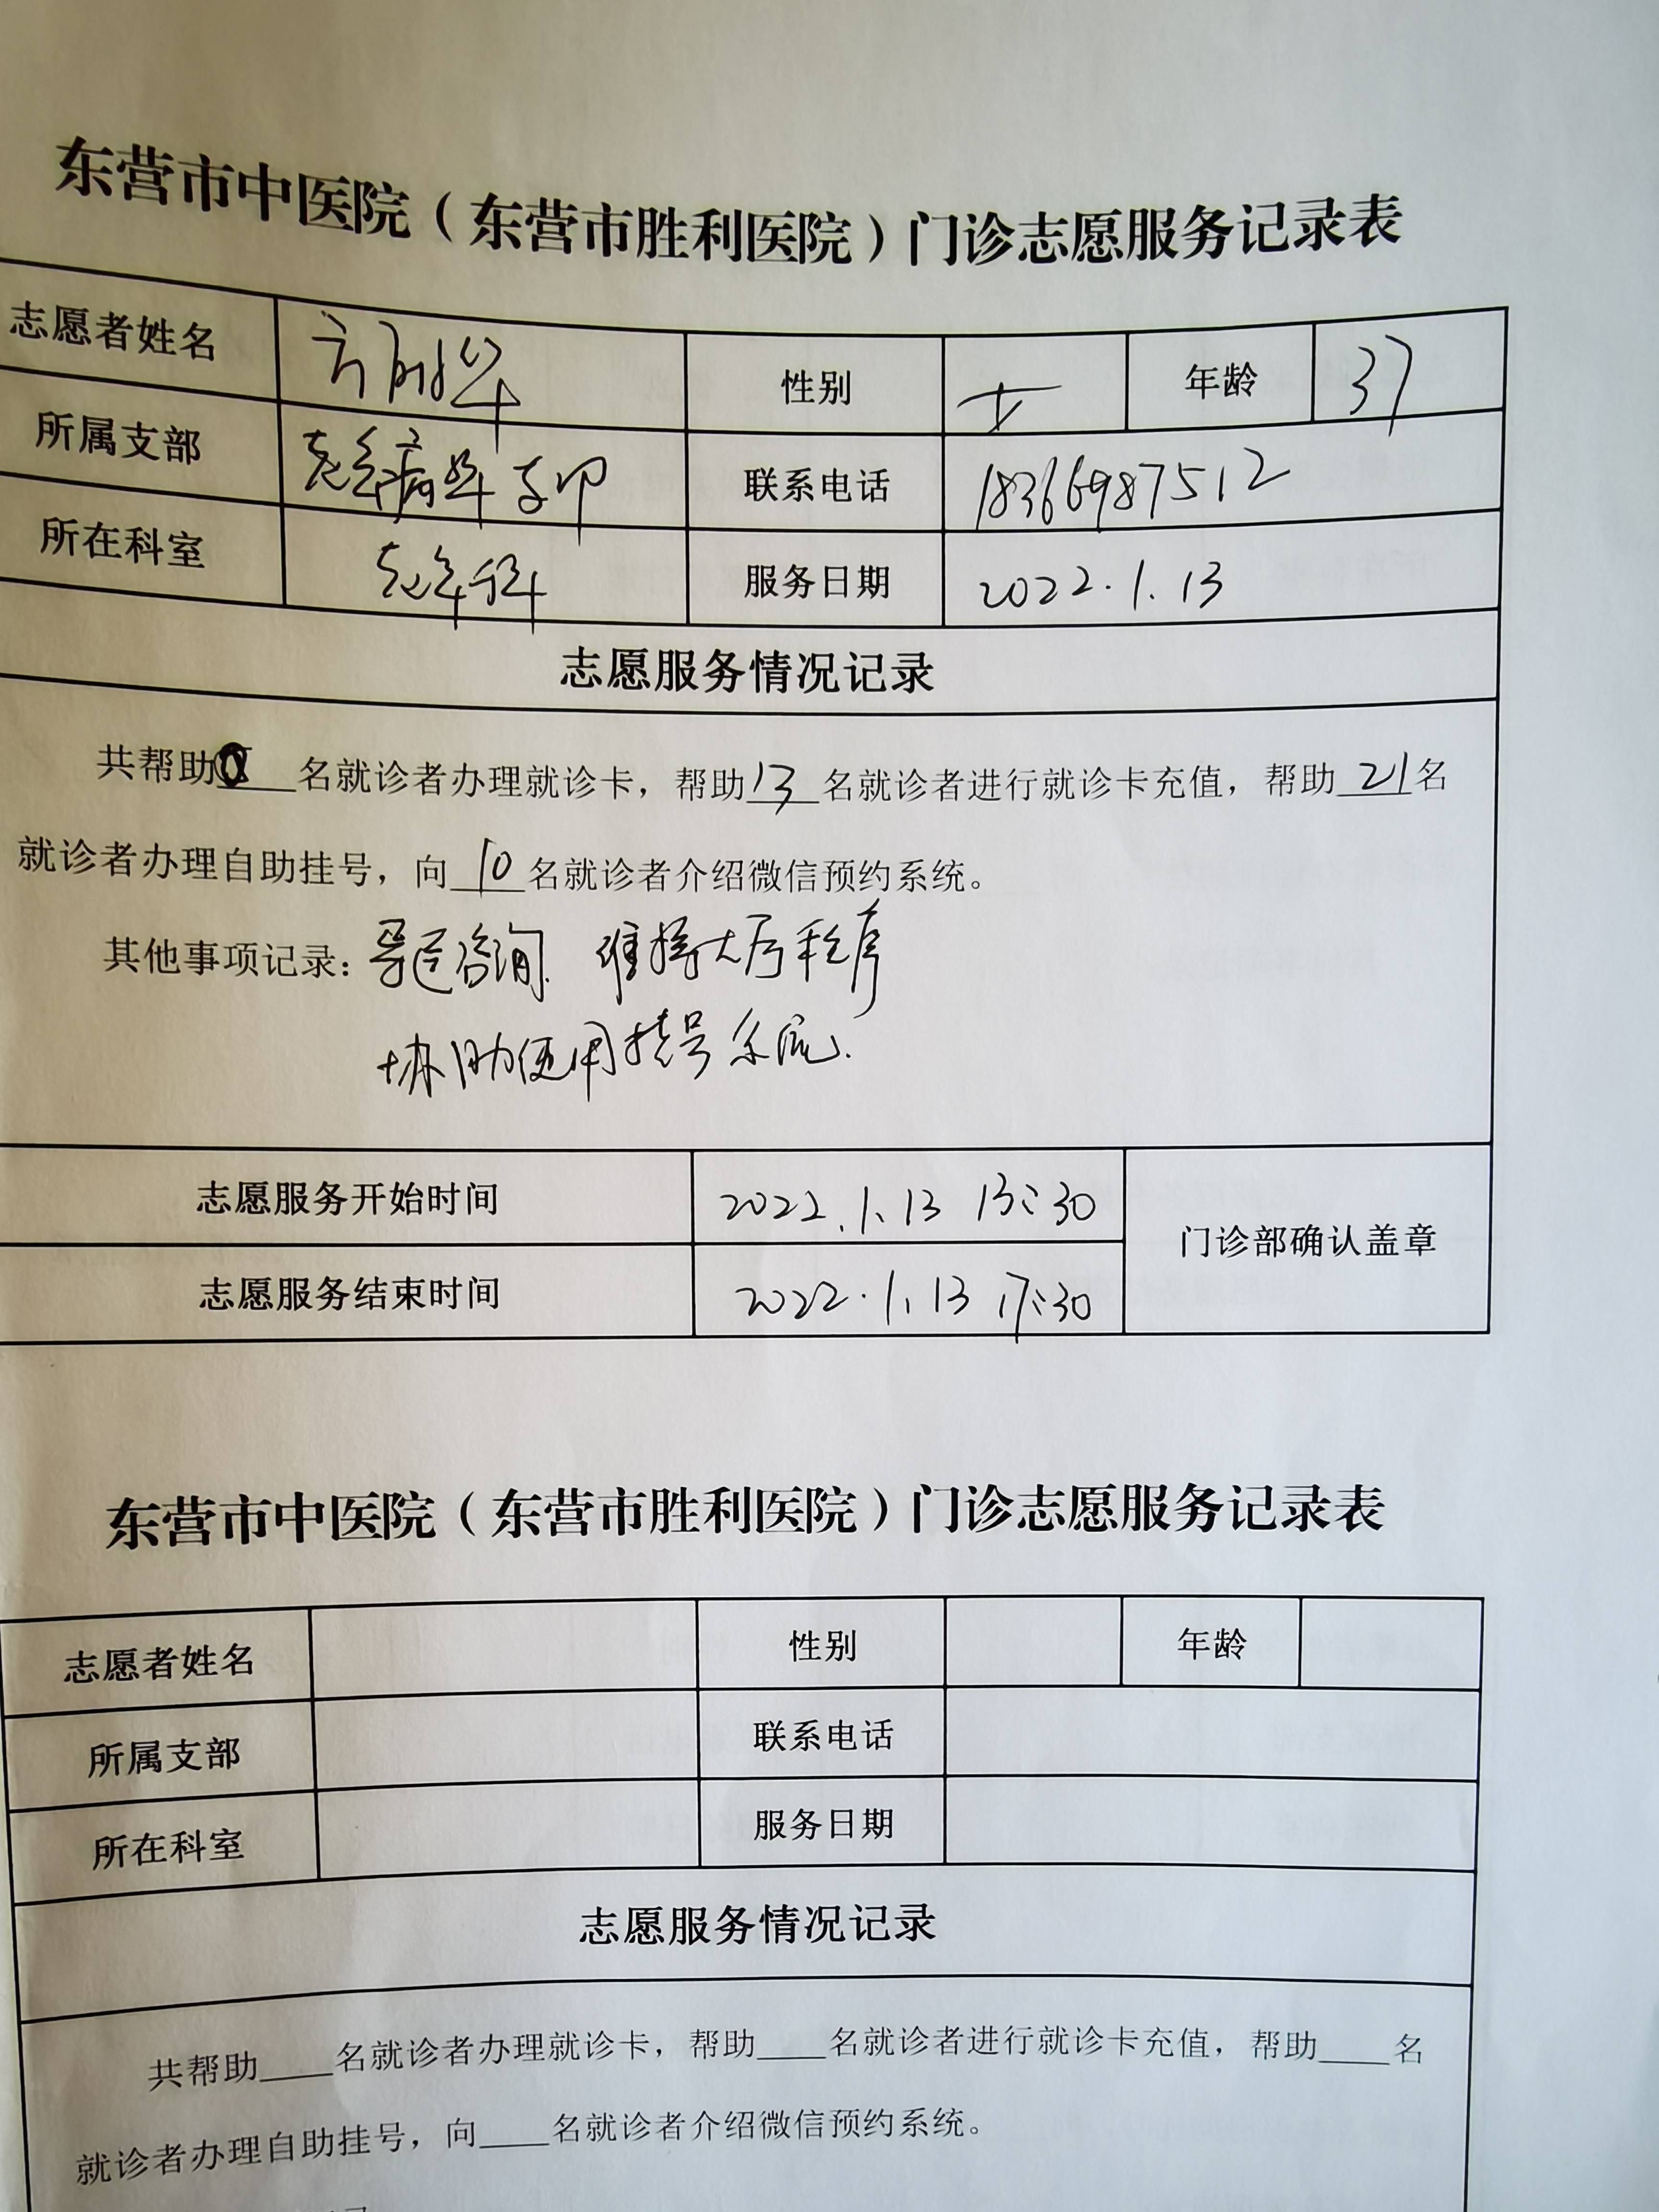 东营市中医院（东营市胜利医院）门诊志愿服务记录表
志愿者姓名 性别 女 年龄 37
所属支部 老年病科支部 联系电话 18366987512
所在科室 老年科 服务日期 2022.1.13
志愿服务情况记录
共帮助0名就诊者办理就诊卡，帮助13名就诊者进行就诊卡充值，帮助21名
就诊者办理自助挂号，向10名就诊者介绍微信预约系统。
其他事项记录：导医咨询. 维持大厅秩序
协助使用挂号系统.
志愿服务开始时间 2022.1.13 13:30 门诊部确认盖章
志愿服务结束时间 2022.1.13 17:30
东营市中医院（东营市胜利医院）门诊志愿服务记录表
志愿者姓名 性别 年龄
所属支部 联系电话
所在科室 服务日期
志愿服务情况记录
共帮助____名就诊者办理就诊卡，帮助____名就诊者进行就诊卡充值，帮助____名
就诊者办理自助挂号，向____名就诊者介绍微信预约系统。